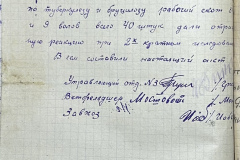 по туберкулезу и бруцелезу рабочий скот
и 9 волов всего 40 штук дали отрица
ную реакцию при 2х кратном исследован
В чем составили настоящий акт
Управляющий отд. №3
Ветфельдшер
Завхоз